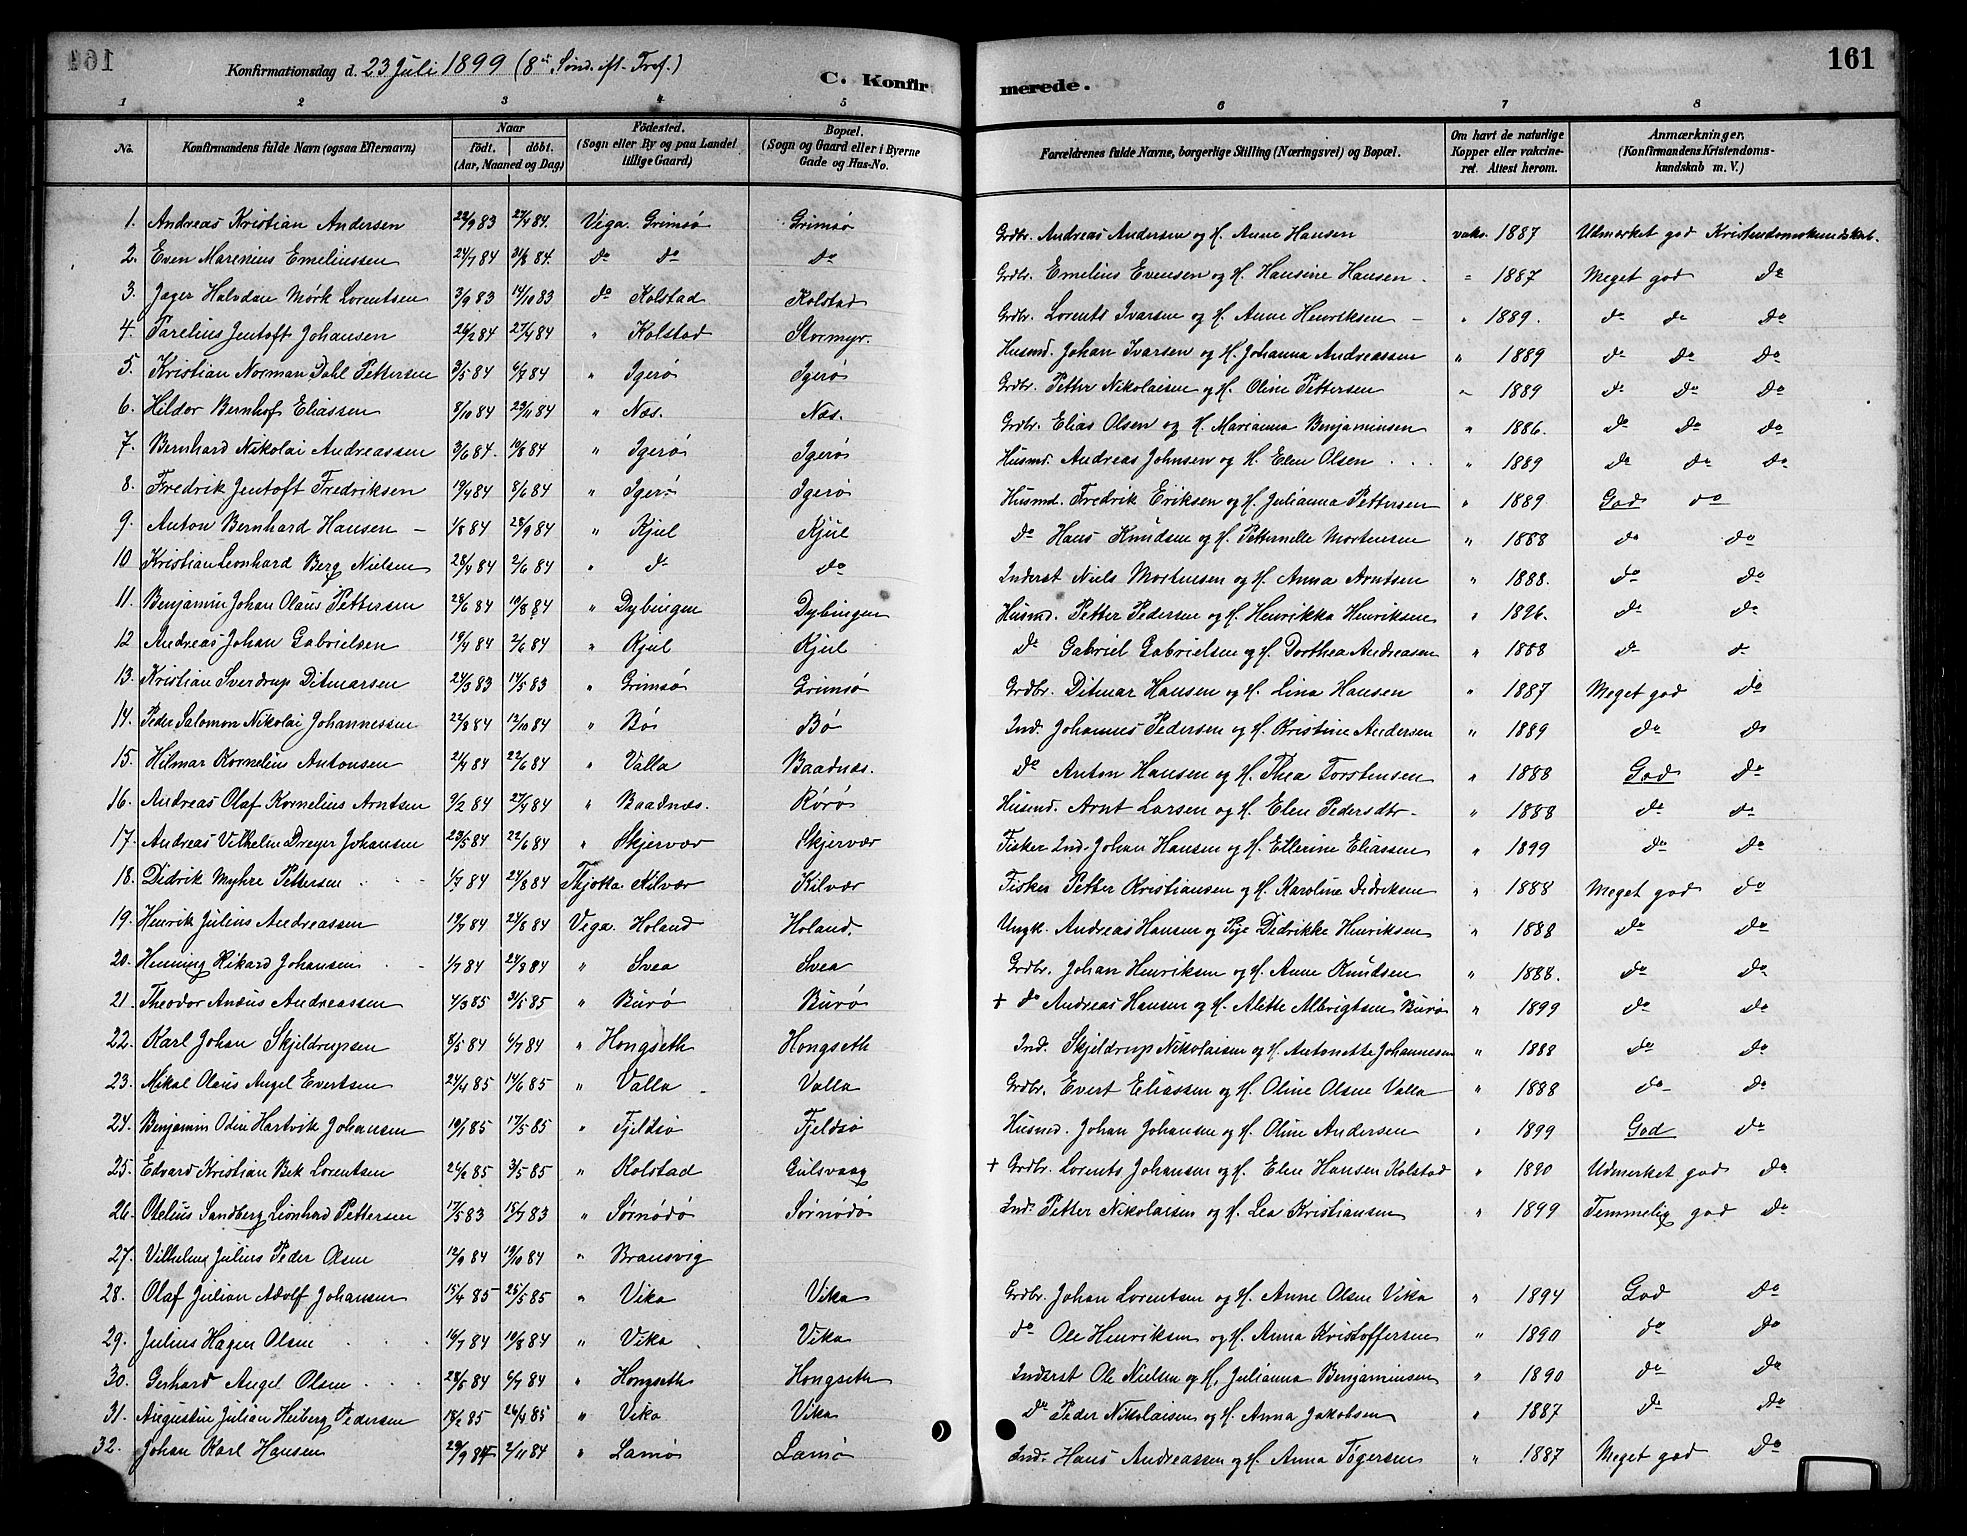 Konfirmationsdag d. 23 Juli 1899 (8de Sønd. eft. Tref.)
C. Konfirmerede.
161
1 2 3 4 5 6 7 8
No. | Konfirmandens fulde Navn (ogsaa Efternavn) | Naar født. døbt. (Aar, Maaned og Dag) | Fødested. (Sogn eller By og paa Landet tillige Gaard) | Bopæl. (Sogn og Gaard eller i Byerne Gade og Hus-No. | Forældrenes fulde Navne, borgerlige Stilling (Næringsvei) og Bopæl. | Om havt de naturlige Kopper eller vakcineret. Attest herom. | Anmærkninger, (Konfirmandens Kristendomskundskab m. V.)
1. Andreas Kristian Andersen 22/9 83 27/4 84. Vega. Grimsø Grimsø Grdbr. Andreas Andersen og H. Anne Hansen vaks. 1887 Udmerket god Kristendomskundskab.
2. Even Marenius Emeliussen 24/7 84 31/8 84. do do do Grdbr. Emelius Evensen og H. Hansine Hansen " 1887 Meget god do
3. Jager Halvdan Mørk Lorentsen 3/9 83 14/10 83 do Kolstad Kolstad Grdbr. Lorents Ivarsen og H. Anne Henriksen " 1889. do do do
4. Parelius Jentoft Johansen 26/2 84 27/4 84 " Kolstad Stormyr. Husmd. Johan Ivarsen og H. Johanna Andreassen " 1889 do do do
5. Kristian Norman Dahl Pettersen 3/5 84 6/7 84 " Igerø Igerø Grdbr. Petter Nikolaisen og H. Oline Pettersen " 1889 do do do
6. Hildor Bernhof Eliassen 8/10 84 23/11 84 " Næs. Næs. Grdbr. Elias Olsen og H. Marianna Benjaminsen " 1886. do do do
7. Bernhard Nikolai Andreassen 3/6 84. 10/8 84 " Igerø Igerø Husmd. Andreas Johnsen og H. Elen Olsen " 1889 do do do
8. Fredrik Jentoft Fredriksen 19/4 84 8/6 84 " Igerø Igerø Husmd. Fredrik Eriksen og H. Julianna Pettersen " 1889 God do
9. Anton Bernhard Hansen 1/8 84 28/9 84 " Kjul Kjul do Hans Knudsen og H. Petternelle Mortensen " 1888 do do
10 Kristian Leonhard Berg Nielsen 28/4 84 2/6 84 " do do Inderst Niels Mortensen og H. Anna Arntsen " 1888. do do
11. Benjamin Johan Olaus Pettersen 28/6 84 10/8 84 " Dybingen Dybingen Husmd. Petter Pedersen og H. Henrikka Henriksen " 1896. do do
12 Andreas Johan Gabrielsen 19/4 84 2/6 84 " Kjul Kjul do Gabriel Gabrielsen og H. Dorthea Andreasen " 1888 do do
13. Kristian Sverdrup Ditmarsen 24/3 83 14/5 83 " Grimsø Grimsø Grdbr. Ditmar Hansen og H. Lina Hansen " 1887 Meget god do
14. Peder Salomon Nikolai Johannessen 22/8 84 12/10 84 " Bø Bø Ind. Johannes Pedersen og H. Kristine Andersen " 1889 do do
15. Hilmar Kornelius Antonsen 21/4 84 22/6 84 " Valla Baadnæs. do Anton Hansen og H. Thea Torstensen " 1888 God do
16. Andreas Olaf Kornelius Arntsen 9/2 84 27/4 84 " Baadnæs. Rørø Husmd. Arnt Larsen og H. Elen Pedersdtr. " 1888 do do
17. Andreas Vilhelm Dreyer Johansen 23/5 84 22/6 84 " Skjervær Skjervær Fisker Ind. Johan Hansen og H. Ellerine Eliassen " 1899 do do
18. Didrik Myhre Pettersen 1/7 84 24/8 84 Thjøtta Kilvær Kilvær Fisker Petter Kristiansen og H. Karoline Didriksen " 1888 Meget god do
19. Henrik Julius Andreassen 19/7 84 24/8 84 Vega. Holand Holand. Ungk. Andreas Hansen og Pige Didrikke Henriksen " 1888 do do
20. Henning Rikard Johansen 1/7 84 24/8 84 " Svea Svea Grdbr. Johan Henriksen og H. Anne Knudsen " 1888. do do
21. Theodor Ansus Andreassen 4/3 85 31/5 85 " Burø Burø + do Andreas Hansen og H. Alette Albrigtsen Burø " 1899 do do
22. Karl Johan Skjeldrupsen 8/5 84 6/7 84 " Hongseth Hongseth Ind. Skjeldrup Nikolaisen og H. Antonette Johannesen " 1888 do do
23. Mikal Olaus Angel Evertsen 24/4 85 14/6 85 " Valla Valla Grdbr. Evert Eliassen og H. Oline Olsen Valla " 1888 do do
24. Benjamin Odin Hartvik Johansen 10/1 85 17/5 85 " Fjeldsø Fjeldsø Husmd. Johan Johansen og H. Oline Andersen " 1899 God do
25. Edvard Kristian Bek Lorentsen 24/2 85 3/5 85 " Kolstad Gulsvaag + Grdbr. Lorents Johansen og H. Elen Hansen Kolstad " 1890 Udmerket god do
26. Otelius Sandberg Leonhard Pettersen 17/5 83 15/7 83 " Sørnødø Sørnødø Ind. Petter Nikolaisen og H. Lea Kristiansen " 1899 Temmelig god do
27. Vilhelm Julius Peder Olsen 12/9 84 19/10 84 " Bransvig
28. Olaf Julian Adolf Johansen 15/4 85 25/5 85 " Vika Vika Grdbr. Johan Lorentsen og H. Anne Olsen Vika " 1894 God do
29. Julius Hagen Olsen 16/7 84 10/8 84 " Vika. Vika do Ole Henriksen og H. Anna Kristoffersen " 1890 do do
30. Gerhard Angel Olsen 28/5 84 6/7 84 " Hongseth Hongseth Inderst Ole Nielsen og H. Julianna Benjaminsen " 1890 do do
31. Augustin Julian Heiberg Pedersen 18/2 85 26/4 85 " Vika Vika do Peder Nikolaisen og H. Anna Jakobsen " 1887 do do
32. Johan Karl Hansen 29/9 84 2/11 84 " Lamø Lamø Ind. Hans Andreassen og H. Anna Tøgersen " 1887 Meget god do